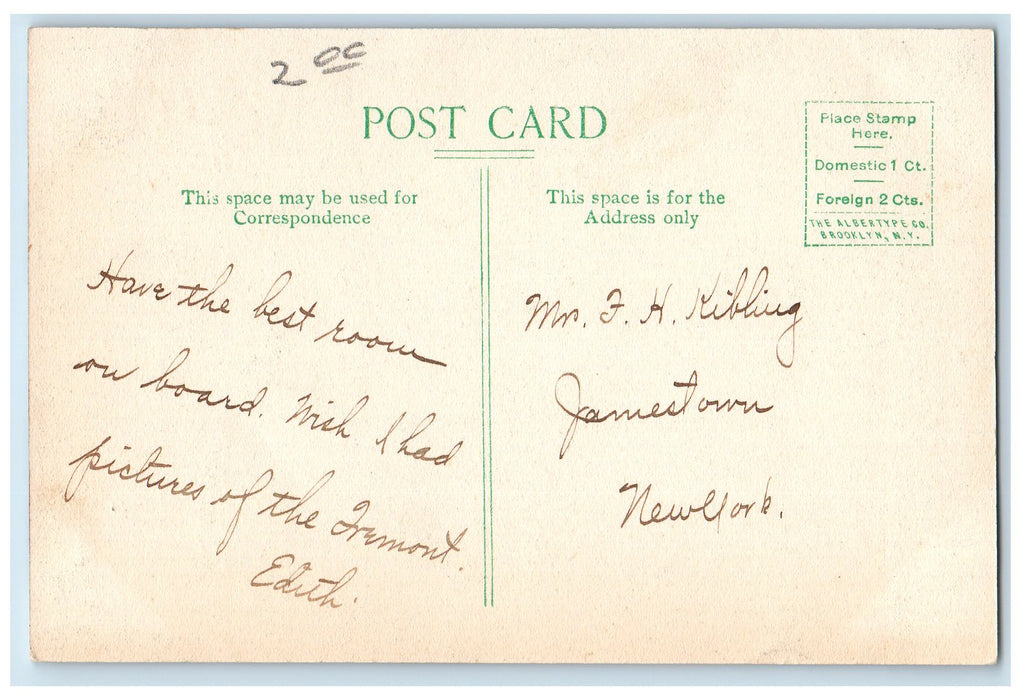 2 00
POST CARD
Place Stamp
Here.
Domestic 1 Ct.
Foreign 2 Cts.
THE ALBERTYPE CO.
BROOKLYN, N.Y.
This space may be used for
Correspondence
This space is for the
Address only
Have the best room
on board. Wish I had
pictures of the Tremont.
Edith.
Mrs. F. H. Kibling
Jamestown
New York.